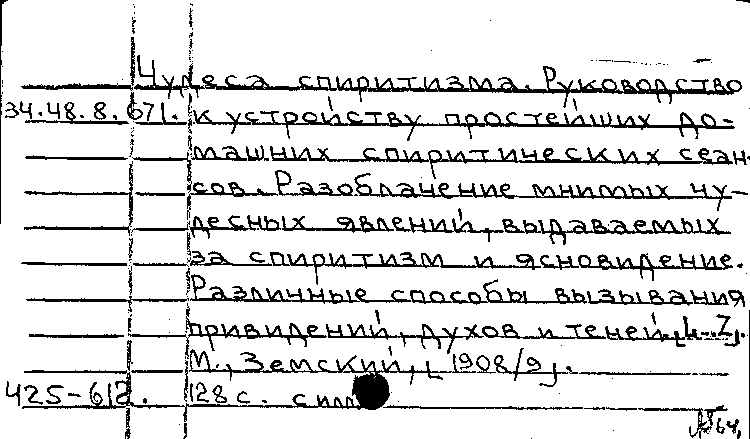 Чудеса спиритизма. Руководство
34.48.8.671. к устройству простейших до-
машних спиритических сеан-
сов. Разоблачение мнимых чу-
десных явлений, выдаваемых
за спиритизм и ясновидение.
Различные способы вызывания
привидений, духов и теней. [...].
М., Земский, [1908/9].
425-612. 128 с. с илл